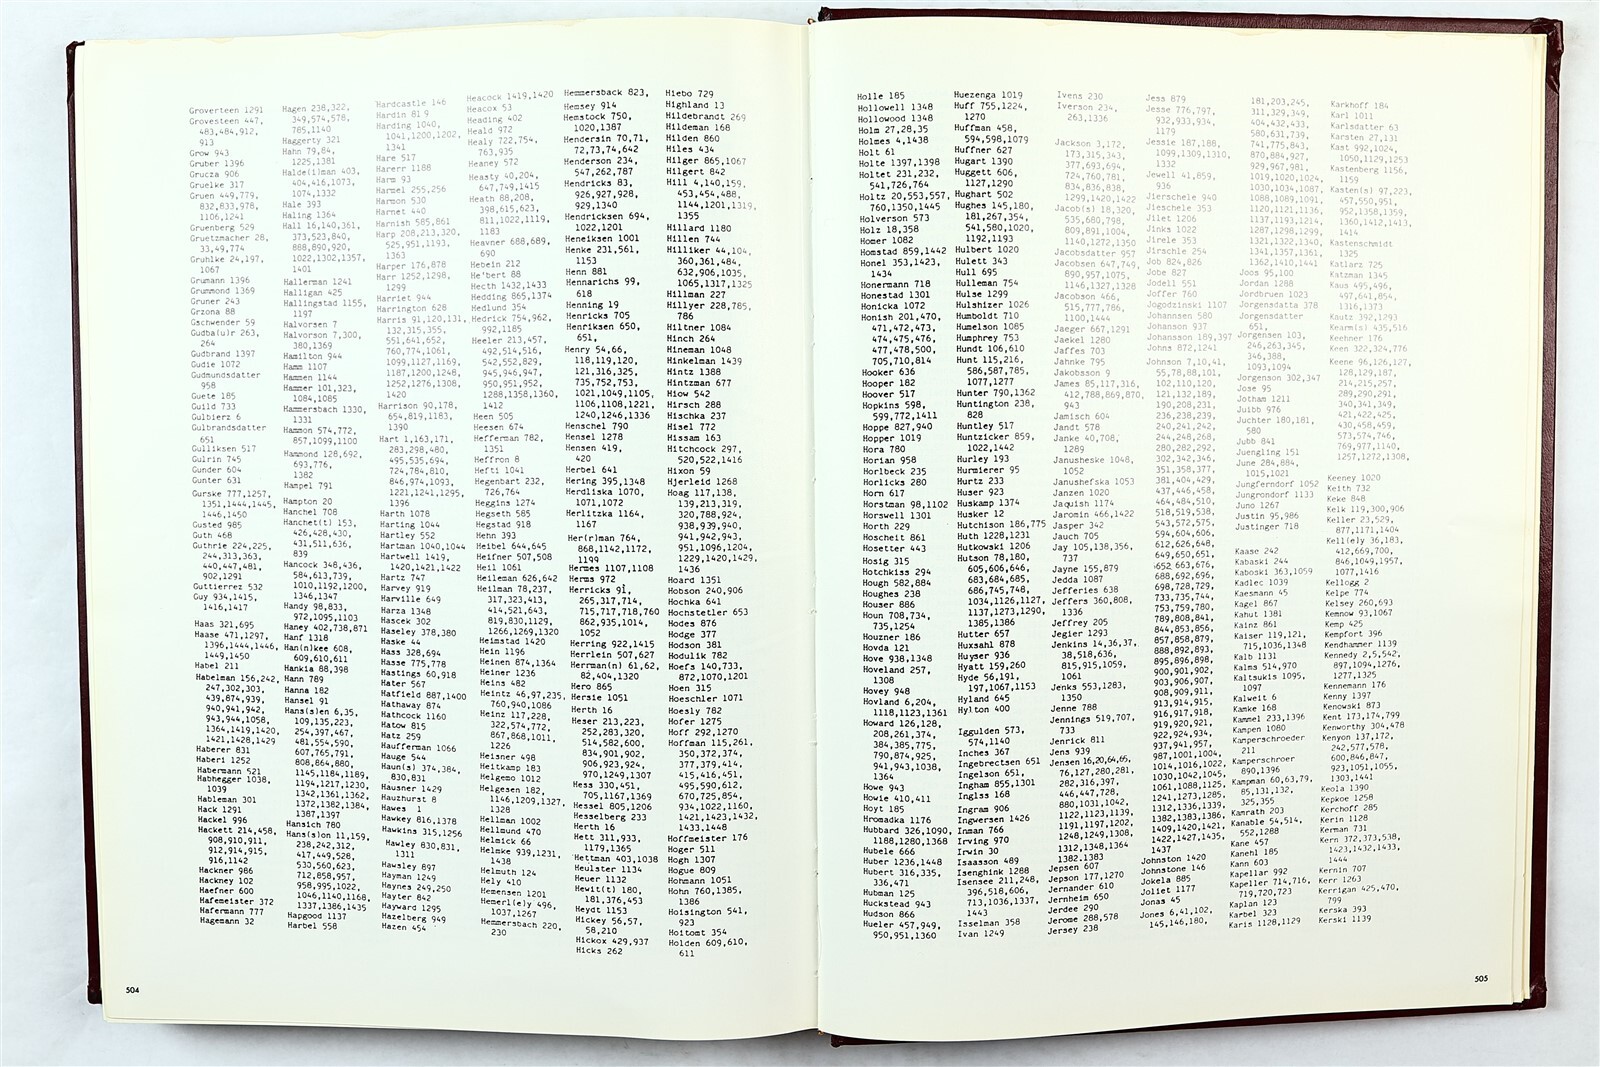 Groverteen 1291
Grovesteen 447,
483,484,912,
913
Grow 943
Gruber 1396
Grucza 906
Gruelke 317
Gruen 449,779,
832,833,978,
1106,1241
Gruenberg 529
Gruetzmacher 28,
33,49,774
Gruhlke 24,197,
1067
Grumann 1396
Grummond 1369
Gruner 243
Grzona 88
Gschwender 59
Gudba(u)r 263,
264
Gudbrand 1397
Gudie 1072
Gudmundsdatter
958
Guete 185
Guild 733
Gulbierz 6
Gulbrandsdatter
651
Gulliksen 517
Gulrin 745
Gunder 604
Gunter 631
Gurske 777,1257,
1351,1444,1445,
1446,1450
Gusted 985
Guth 468
Guthrie 224,225,
244,313,363,
440,447,481,
902,1291
Guttierrez 532
Guy 934,1415,
1416,1417
Haas 321,695
Haase 471,1297,
1396,1444,1446,
1449,1450
Habel 211
Habelman 156,242,
247,302,303,
439,874,939,
940,941,942,
943,944,1058,
1364,1419,1420,
1421,1428,1429
Haberer 831
Haberl 1252
Habermann 521
Habhegger 1038,
1039
Hableman 301
Hack 1291
Hackel 996
Hackett 214,458,
908,910,911,
912,914,915,
916,1142
Hackner 986
Hackney 102
Haefner 600
Hafemeister 372
Hafermann 777
Hagemann 32
Hagen 238,322,
349,574,578,
785,1140
Haggerty 321
Hahn 79,84,
1225,1381
Halde(i)man 403,
404,416,1073,
1074,1332
Hale 393
Haling 1364
Hall 16,140,361,
373,523,840,
888,890,920,
1022,1302,1357,
1401
Hallerman 1241
Halligan 425
Hallingstad 1155,
1197
Halvorsen 7
Halvorson 7,300,
380,1369
Hamilton 944
Hamm 1107
Hammen 1144
Hammer 101,323,
1084,1085
Hammersbach 1330,
1331
Hammon 574,772,
857,1099,1100
Hammond 128,692,
693,776,
1382
Hampel 791
Hampton 20
Hanchel 708
Hanchet(t) 153,
426,428,430,
431,511,636,
839
Hancock 348,436,
584,613,739,
1010,1192,1200,
1346,1347
Handy 98,833,
972,1095,1103
Haney 402,738,871
Hanf 1318
Han(n)kee 608,
609,610,611
Hankia 88,398
Hann 789
Hanna 182
Hansel 91
Hans(s)en 6,35,
109,135,223,
254,397,467,
481,554,590,
607,765,791,
808,864,880,
1145,1184,1189,
1194,1217,1230,
1342,1361,1362,
1372,1382,1384,
1387,1397
Hansich 780
Hans(s)on 11,159,
238,242,312,
417,449,528,
530,560,623,
712,858,957,
958,995,1022,
1046,1140,1168,
1337,1386,1435
Hapgood 1137
Harbel 558
Hardcastle 146
Hardin 819
Harding 1040,
1041,1200,1202,
1341
Hare 517
Harerr 1188
Harm 93
Harmel 255,256
Harmon 530
Harnet 440
Harnish 585,861
Harp 208,213,320,
525,951,1193,
1363
Harper 176,878
Harr 1252,1298,
1299
Harriet 944
Harrington 628
Harris 91,120,131,
132,315,355,
551,641,652,
760,774,1061,
1099,1127,1169,
1187,1200,1248,
1252,1276,1308,
1420
Harrison 90,178,
654,819,1183,
1390
Hart 1,163,171,
283,298,480,
495,535,694,
724,784,810,
846,974,1093,
1221,1241,1295,
1396
Harth 1078
Harting 1044
Hartley 552
Hartman 1040,1044
Hartwell 1419,
1420,1421,1422
Hartz 747
Harvey 919
Harville 649
Harza 1348
Hascek 302
Haseley 378,380
Haske 44
Hass 328,694
Hasse 775,778
Hastings 60,918
Hater 567
Hatfield 887,1400
Hathaway 874
Hathcock 1160
Hatow 815
Hatz 259
Haufferman 1066
Hauge 544
Haun(s) 374,384,
830,831
Hausner 1429
Hauzhurst 8
Hawes 1
Hawkey 816,1378
Hawkins 315,1256
Hawley 830,831,
1311
Hawsley 897
Hayman 1249
Haynes 249,250
Hayter 842
Hayward 1295
Hazelberg 949
Hazen 454
Heacock 1419,1420
Heacox 53
Heading 402
Heald 972
Healy 722,754,
763,935
Heaney 572
Heasty 40,204,
647,749,1415
Heath 88,208,
398,615,623,
811,1022,1119,
1183
Heavner 688,689,
690
Hebein 212
He'bert 88
Hecth 1432,1433
Hedding 865,1374
Hedlund 354
Hedrick 754,962,
992,1185
Heeler 213,457,
492,514,516,
542,552,829,
945,946,947,
950,951,952,
1288,1358,1360,
1412
Heen 505
Heesen 674
Hefferman 782,
1351
Heffron 8
Hefti 1041
Hegenbart 232,
726,764
Heggins 1274
Hegseth 585
Hegstad 918
Hehn 393
Heibel 644,645
Heifner 507,508
Heil 1061
Heileman 626,642
Heilman 78,237,
317,323,413,
414,521,643,
819,830,1129,
1266,1269,1320
Heimstad 1420
Hein 1196
Heinen 874,1364
Heiner 1236
Heins 482
Heintz 46,97,235,
760,940,1086
Heinz 117,228,
322,574,772,
867,868,1011,
1226
Heisner 498
Heitkamp 183
Helgemo 1012
Helgesen 182,
1146,1209,1327,
1328
Hellman 1002
Hellmund 470
Helmick 66
Helmke 939,1231,
1438
Helmuth 124
Hely 410
Hemensen 1201
Hemerl(e)y 496,
1037,1267
Hemmersbach 220,
230
Hemmersback 823,
Hemsey 914
Hemstock 750,
1020,1387
Hendersin 70,71,
72,73,74,642
Henderson 234,
547,262,787
Hendricks 83,
926,927,928,
929,1340
Hendricksen 694,
1022,1201
Heneiksen 1001
Henke 231,561,
1153
Henn 881
Hennarichs 99,
618
Henning 19
Henricks 705
Henriksen 650,
651,
Henry 54,66,
118,119,120,
121,316,325,
735,752,753,
1021,1049,1105,
1106,1108,1221,
1240,1246,1336
Henschel 790
Hensel 1278
Hensen 419,
420
Herbel 641
Hering 395,1348
Herdliska 1070,
1071,1072
Herlitzka 1164,
1167
Her(r)man 764,
868,1142,1172,
1199
Hermes 1107,1108
Herms 972
Herricks 91,
265,317,714,
715,717,718,760
862,935,1014,
1052
Herring 922,1415
Herrlein 507,627
Herrman(n) 61,62,
82,404,1320
Hero 865
Hersie 1051
Herth 16
Heser 213,223,
252,283,320,
514,582,600,
834,901,902,
906,923,924,
970,1249,1307
Hess 330,451,
705,1167,1369
Hessel 805,1206
Hesselberg 233
Herth 16
Hett 311,933,
1179,1365
Hettman 403,1038
Heulster 1134
Heuer 1132
Hewit(t) 180,
181,376,453
Heydt 1153
Hickey 56,57,
58,210
Hickox 429,937
Hicks 262
Hiebo 729
Highland 13
Hildebrandt 269
Hildeman 168
Hilden 860
Hiles 434
Hilger 865,1067
Hilgert 842
Hill 4,140,159,
453,454,488,
1144,1201,1319,
1355
Hillard 1180
Hillen 744
Hilliker 44,104,
360,361,484,
632,906,1035,
1065,1317,1325
Hillman 227
Hillyer 228,785,
786
Hiltner 1084
Hinch 264
Hineman 1048
Hinkelman 1439
Hintz 1388
Hintzman 677
Hiow 542
Hirsch 288
Hischka 237
Hisel 772
Hissam 163
Hitchcock 297,
520,522,1416
Hixon 59
Hjerleid 1268
Hoag 117,138,
139,213,319,
320,788,924,
938,939,940,
941,942,943,
951,1096,1204,
1229,1420,1429,
1436
Hoard 1351
Hobson 240,906
Hochka 641
Hochstetler 653
Hodes 876
Hodge 377
Hodson 381
Hodulik 782
Hoefs 140,733,
872,1070,1201
Hoen 315
Hoeschler 1071
Hoesly 782
Hofer 1275
Hoff 292,1270
Hoffman 115,261,
350,372,374,
377,379,414,
415,416,451,
495,590,612,
670,725,854,
934,1022,1160,
1421,1423,1432,
1433,1448
Hoffmeister 176
Hoger 511
Hogh 1307
Hogue 809
Hohmann 1051
Hohn 760,1385,
1386
Hoisington 541,
923
Hoitomt 354
Holden 609,610,
611
504
Holle 185
Hollowell 1348
Hollowood 1348
Holm 27,28,35
Holmes 4,1438
Holt 61
Holte 1397,1398
Holtet 231,232,
541,726,764
Holtz 20,553,557,
760,1350,1445
Holverson 573
Holz 18,358
Homer 1082
Homstad 859,1442
Honel 353,1423,
1434
Honermann 718
Honestad 1301
Honicka 1072
Honish 201,470,
471,472,473,
474,475,476,
477,478,500,
705,710,814
Hooker 636
Hooper 182
Hoover 517
Hopkins 598,
599,772,1411
Hoppe 827,940
Hopper 1019
Hora 780
Horian 958
Horlbeck 235
Horlicks 280
Horn 617
Horstman 98,1102
Horswell 1301
Horth 229
Hoscheit 861
Hosetter 443
Hosig 315
Hotchkiss 294
Hough 582,884
Houghes 238
Houser 886
Houn 708,734,
735,1254
Houzner 186
Hovda 121
Hove 938,1348
Hoveland 257,
1308
Hovey 948
Hovland 6,204,
1118,1123,1361
Howard 126,128,
208,261,374,
384,385,775,
790,874,925,
941,943,1038,
1364
Howe 943
Howie 410,411
Hoyt 185
Hromadka 1176
Hubbard 326,1090,
1188,1280,1368
Hubele 666
Huber 1236,1448
Hubert 316,335,
336,471
Hubman 125
Huckstead 943
Hudson 866
Hueler 457,949,
950,951,1360
Huezenga 1019
Huff 755,1224,
1270
Huffman 458,
594,598,1079
Huffner 627
Hugart 1390
Huggett 606,
1127,1290
Hughart 502
Hughes 145,180,
181,267,354,
541,580,1020,
1192,1193
Hulbert 1020
Hulett 343
Hull 695
Hulleman 754
Hulse 1299
Hulshizer 1026
Humboldt 710
Humelson 1085
Humphrey 753
Hundt 106,610
Hunt 115,216,
586,587,785,
1077,1277
Hunter 790,1362
Huntington 238,
828
Huntley 517
Huntzicker 859,
1022,1442
Hurley 193
Hurmierer 95
Hurtz 233
Huser 923
Huskamp 1374
Husker 2
Hutchison 186,775
Huth 1228,1231
Hutkowski 1206
Hutson 78,180,
605,606,646,
683,684,685,
686,745,748,
1034,1126,1127,
1137,1273,1290,
1385,1386
Hutter 657
Huxsahl 878
Huyser 936
Hyatt 159,260
Hyde 56,191,
197,1067,1153
Hyland 645
Hylton 400
Iggulden 573,
574,1140
Inches 367
Ingebrectsen 651
Ingelson 651,
Ingham 855,1301
Inglss 168
Ingram 906
Ingwersen 1426
Inman 766
Irving 970
Irwin 30
Isaasson 489
Isenghink 1288
Isensee 211,248,
396,518,606,
713,1036,1337,
1443
Isselman 358
Ivan 1249
Ivens 230
Iverson 234,
263,1336
Jackson 3,172,
173,315,343,
377,693,694,
724,760,781,
834,836,838,
1299,1420,1422
Jacob(s) 18,320,
535,680,798,
809,891,1004,
1140,1272,1350
Jacobsdatter 957
Jacobsen 647,749,
890,957,1075,
1146,1327,1328
Jacobson 466,
515,777,786,
1100,1444
Jaeger 667,1291
Jaekel 1280
Jaffes 703
Jahnke 795
Jakobsson 9
James 85,117,316,
412,788,869,870,
943
Jamisch 604
Jandt 578
Janke 40,708,
1289
Janusheske 1048,
1052
Janushefska 1053
Janzen 1020
Jaquish 1174
Jaromin 466,1422
Jasper 342
Jay 105,138,356,
737
Jayne 155,879
Jedda 1087
Jefferies 638
Jeffers 360,808,
1336
Jeffrey 205
Jegier 1293
Jenkins 14,36,37,
38,518,636,
815,915,1059,
1061
Jenks 553,1283,
1350
Jenne 788
Jennings 519,707,
733
Jenrick 811
Jens 939
Jensen 16,20,64,65,
76,127,280,281,
282,316,397,
446,447,728,
880,1031,1042,
1122,1123,1139,
1191,1197,1202,
1248,1249,1308,
1312,1348,1364
1382,1383
Jepsen 607
Jepson 177,1270
Jernander 610
Jernheim 650
Jerdee 290
Jerome 288,578
Jersey 238
Jess 879
Jesse 776,797,
932,933,934,
1179
Jessie 187,188,
1099,1309,1310,
1332
Jewell 41,859,
936
Jierschele 940
Jieschele 353
Jilet 1206
Jinks 1022
Jirele 353
Jirschle 254
Job 824,826
Jobe 827
Jodell 551
Joffer 760
Jogodzinski 1107
Johannsen 580
Johanson 937
Johansson 189,397
Johns 872,1241
Johnson 7,10,41,
55,78,88,101,
102,110,120,
121,132,189,
190,208,231,
236,238,239,
240,241,242,
244,248,268,
280,282,292,
302,342,346,
351,358,377,
381,404,429,
437,446,458,
464,484,510,
518,519,538,
543,572,575,
594,604,606,
612,626,648,
649,650,651,
652,663,676,
688,692,696,
698,728,729,
733,735,744,
753,759,780,
789,808,841,
844,853,856,
857,858,879,
888,892,893,
895,896,898,
900,901,902,
903,906,907,
908,909,911,
913,914,915,
916,917,918,
919,920,921,
922,924,934,
937,941,957,
987,1001,1004,
1014,1016,1022,
1030,1042,1045,
1061,1088,1125,
1241,1273,1285,
1312,1336,1339,
1382,1383,1386,
1409,1420,1421,
1422,1427,1435,
1437
Johnston 1420
Johnstone 146
Jokela 885
Joliet 1177
Jonas 45
Jones 6,41,102,
145,146,180,
181,203,245,
311,329,349,
404,432,433,
580,631,739,
741,775,843,
870,884,927,
929,967,981,
1019,1020,1024,
1030,1034,1087,
1088,1089,1091,
1120,1121,1136,
1137,1193,1214,
1287,1298,1299,
1321,1322,1340,
1341,1357,1361,
1362,1410,1441
Joos 95,100
Jordan 1288
Jordbruen 1023
Jorgensdatta 378
Jorgensdatter
651,
Jorgensen 103,
246,263,345,
346,388,
1093,1094
Jorgenson 302,347
Jose 95
Jotham 1211
Juibb 976
Juchter 180,181,
580
Jubb 841
Juengling 151
June 284,884,
1015,1021
Jungferndorf 1052
Jungrondorf 1133
Juno 1267
Justin 95,986
Justinger 718
Kaase 242
Kabaski 244
Kaboski 363,1059
Kadlec 1039
Kaesmann 45
Kagel 867
Kahut 1381
Kainz 861
Kaiser 119,121,
715,1036,1348
Kalb 1131
Kalms 514,970
Kaltsukis 1095,
1097
Kalweit 6
Kamke 168
Kammel 233,1396
Kampen 1080
Kamperschroeder
211
Kamperschroer
890,1396
Kampman 60,63,79,
85,131,132,
325,355
Kamrath 203
Kanable 54,514,
552,1288
Kane 457
Kanehl 185
Kann 603
Kapellar 992
Kapeller 714,716,
719,720,723
Kaplan 123
Karbel 323
Karis 1128,1129
Karkhoff 184
Karl 1011
Karlsdatter 63
Karsten 27,131
Kast 992,1024,
1050,1129,1253
Kastenberg 1156,
1159
Kasten(s) 97,223,
457,550,951,
952,1358,1359,
1360,1412,1413,
1414
Kastenschmidt
1325
Katlarz 725
Katzman 1345
Kaus 495,496,
497,641,854,
1316,1373
Kautz 392,1293
Kearm(s) 435,516
Keehner 176
Keen 322,324,776
Keene 96,126,127,
128,129,187,
214,215,257,
289,290,291,
340,341,349,
421,422,425,
430,458,459,
573,574,746,
769,977,1140,
1257,1272,1308,
Keeney 1020
Keith 732
Keke 848
Kelk 119,300,906
Keller 23,529,
877,1171,1404
Kell(e)y 36,183,
412,669,700,
846,1049,1957,
1077,1416
Kellogg 2
Kelpe 774
Kelsey 260,693
Kemnow 93,1067
Kemp 425
Kempfort 396
Kendhammer 1139
Kennedy 2,5,542,
897,1094,1276,
1277,1325
Kennemann 176
Kenny 1397
Kenowski 873
Kent 173,174,799
Kenworthy 304,478
Kenyon 137,172,
242,577,578,
600,846,847,
923,1051,1055,
1303,1441
Keola 1390
Kepkoe 1258
Kerchoff 285
Kerin 1128
Kerman 731
Kern 372,373,538,
1423,1432,1433,
1444
Kernin 707
Kerr 1263
Kerrigan 425,470,
799
Kerska 393
Kerski 1139
505